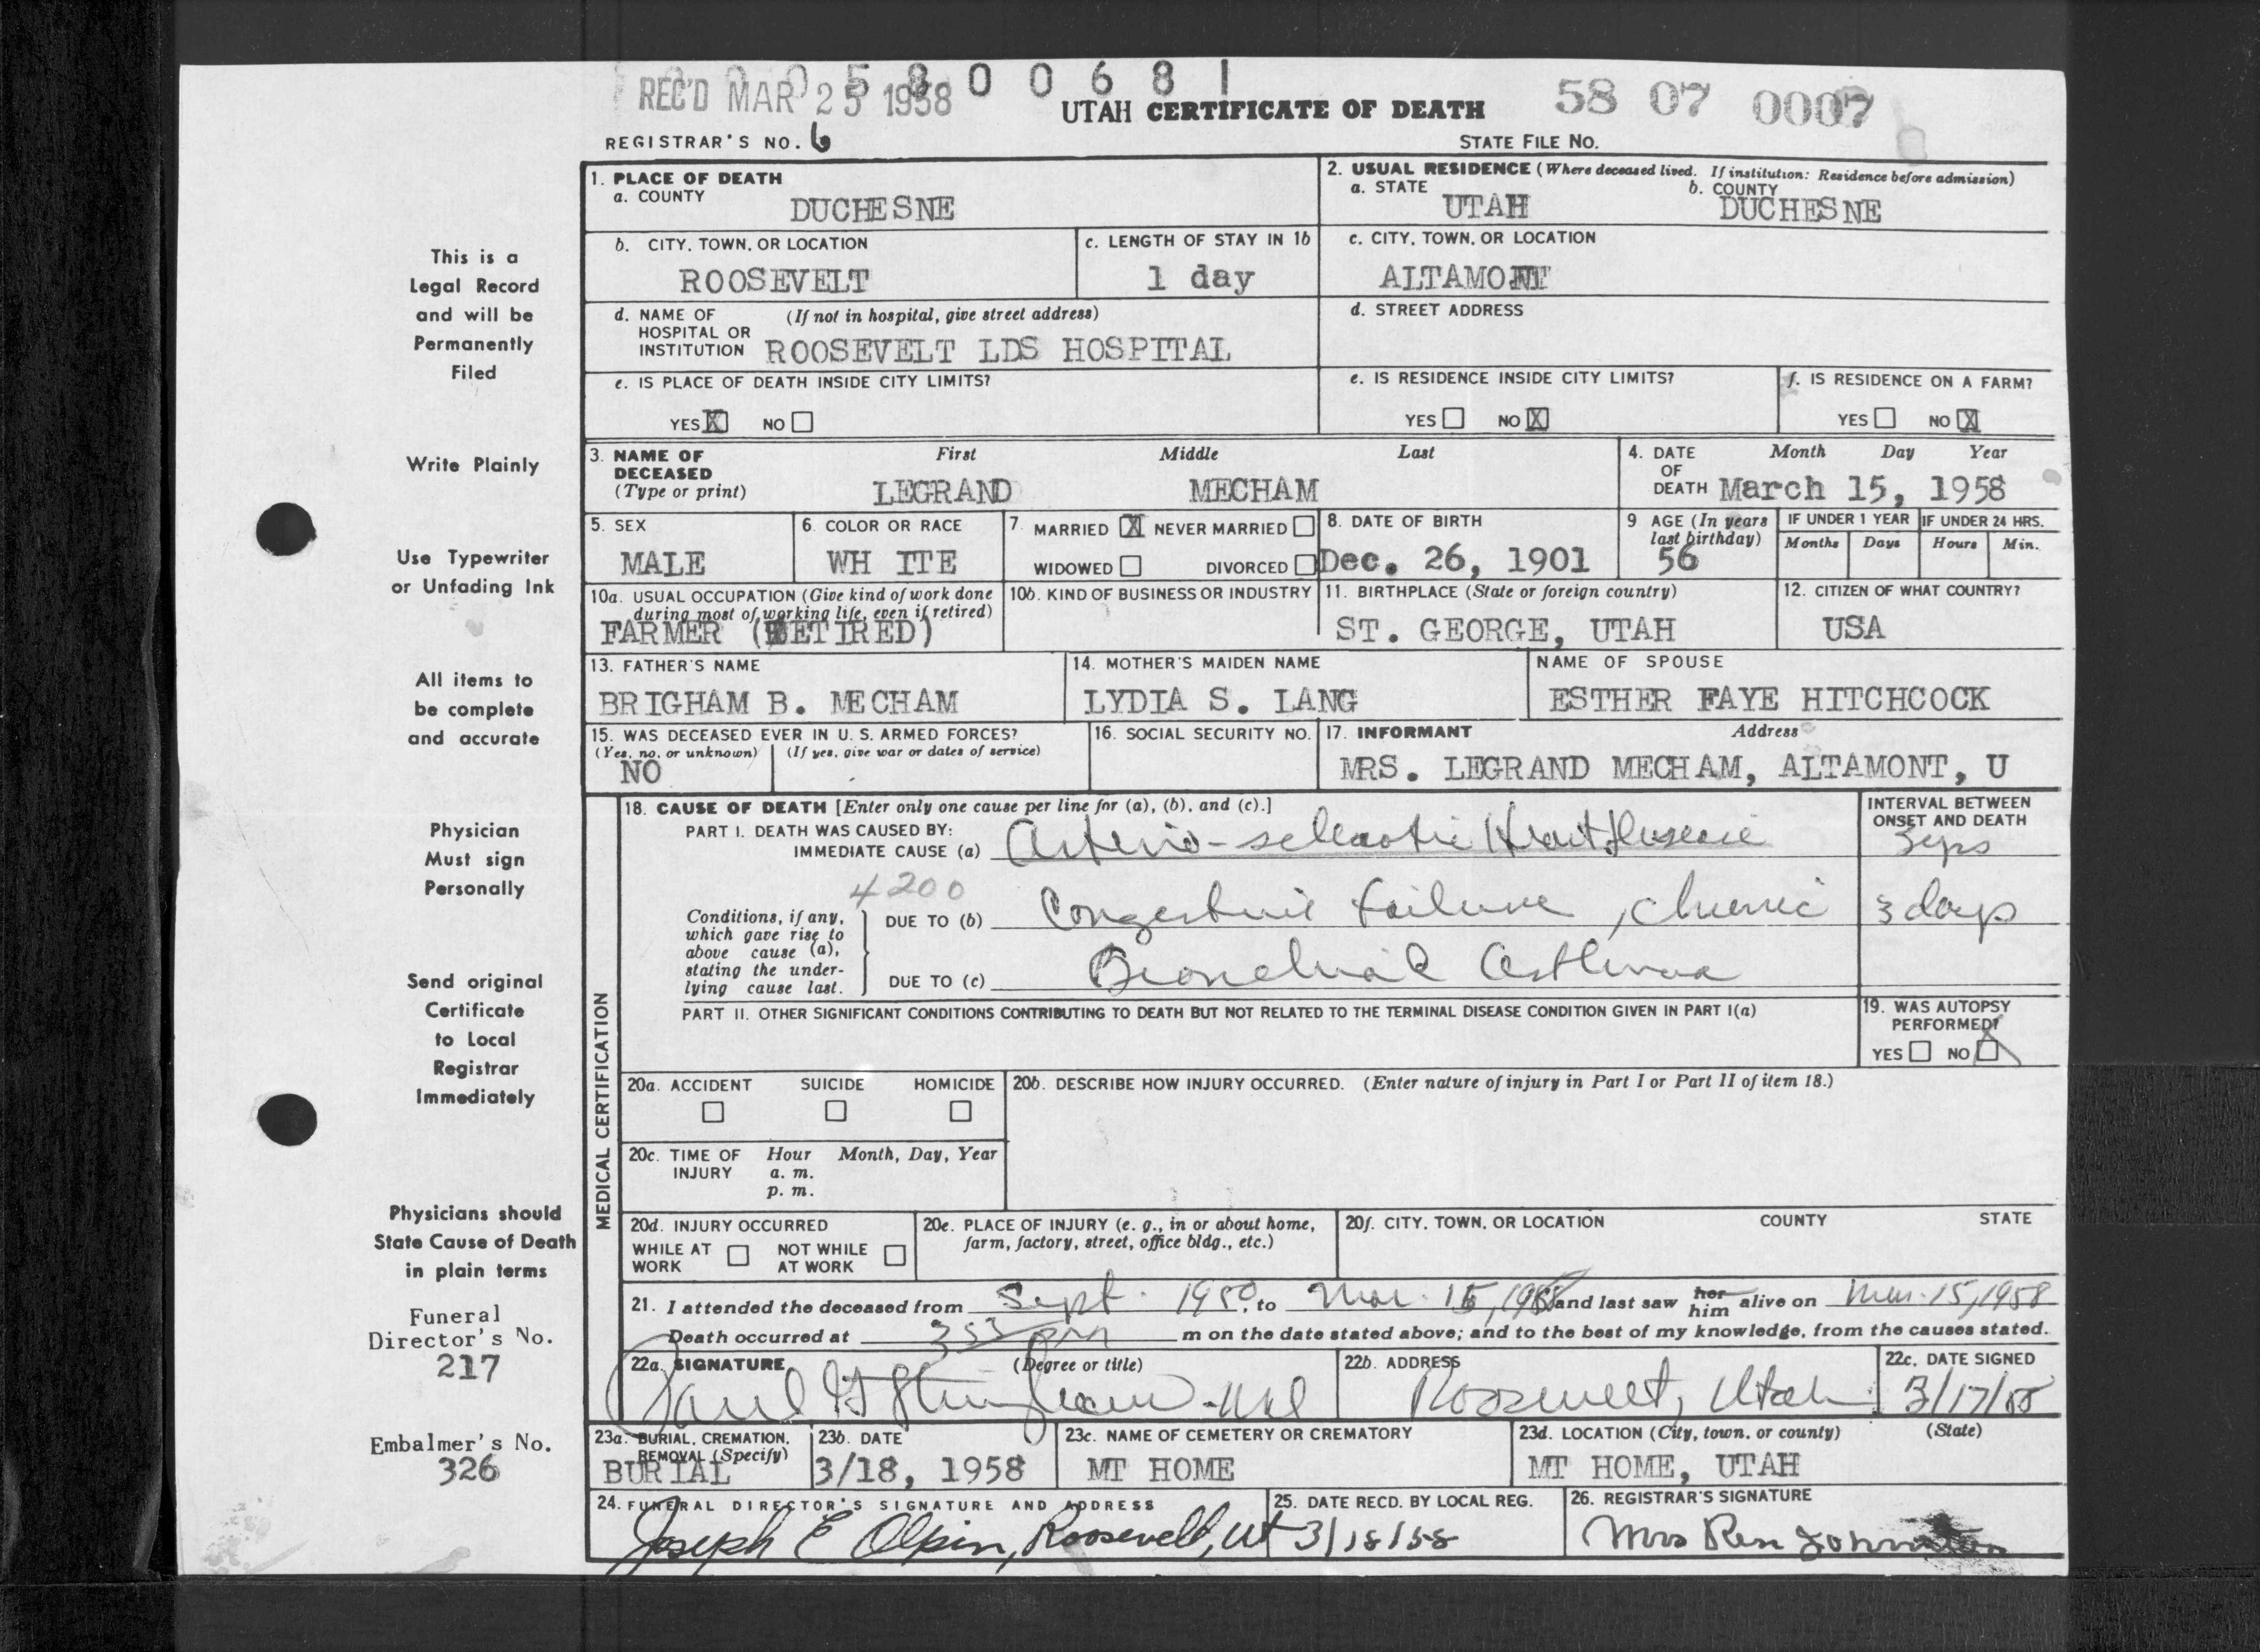 REC'D MAR 25 1958
0 0 6 8 1
UTAH CERTIFICATE OF DEATH
58 07 0007
REGISTRAR'S NO. 6
STATE FILE NO.
1. PLACE OF DEATH
a. COUNTY
DUCHESNE
2. USUAL RESIDENCE (Where deceased lived. If institution: Residence before admission)
a. STATE
UTAH
b. COUNTY
DUCHESNE
b. CITY, TOWN, OR LOCATION
ROOSEVELT
c. LENGTH OF STAY IN 1b
1 day
c. CITY, TOWN, OR LOCATION
ALTAMONT
d. NAME OF (If not in hospital, give street address)
HOSPITAL OR
INSTITUTION ROOSEVELT LDS HOSPITAL
d. STREET ADDRESS
e. IS PLACE OF DEATH INSIDE CITY LIMITS?
YES X NO
e. IS RESIDENCE INSIDE CITY LIMITS?
YES NO X
f. IS RESIDENCE ON A FARM?
YES NO X
3. NAME OF
DECEASED
(Type or print)
First Middle Last
LEGRAND MECHAM
4. DATE
OF
DEATH
Month Day Year
March 15, 1958
5. SEX
MALE
6. COLOR OR RACE
WH ITE
7. MARRIED X NEVER MARRIED
WIDOWED DIVORCED
8. DATE OF BIRTH
Dec. 26, 1901
9 AGE (In years
last birthday)
56
IF UNDER 1 YEAR
Months Days
IF UNDER 24 HRS.
Hours Min.
10a. USUAL OCCUPATION (Give kind of work done
during most of working life, even if retired)
FARMER (RETIRED)
10b. KIND OF BUSINESS OR INDUSTRY
11. BIRTHPLACE (State or foreign country)
ST. GEORGE, UTAH
12. CITIZEN OF WHAT COUNTRY?
USA
13. FATHER'S NAME
BRIGHAM B. MECHAM
14. MOTHER'S MAIDEN NAME
LYDIA S. LANG
NAME OF SPOUSE
ESTHER FAYE HITCHCOCK
15. WAS DECEASED EVER IN U. S. ARMED FORCES?
(Yes, no, or unknown) (If yes, give war or dates of service)
NO
16. SOCIAL SECURITY NO.
17. INFORMANT Address
MRS. LEGRAND MECHAM, ALTAMONT, U
MEDICAL CERTIFICATION
18. CAUSE OF DEATH [Enter only one cause per line for (a), (b), and (c).]
PART I. DEATH WAS CAUSED BY:
IMMEDIATE CAUSE (a) Arterio-sclerotic Heart Disease
INTERVAL BETWEEN
ONSET AND DEATH
3 yrs
4200
Conditions, if any,
which gave rise to
above cause (a),
stating the under-
lying cause last.
DUE TO (b) Congestive failure, chronic
3 days
DUE TO (c) Bronchial Asthma
PART II. OTHER SIGNIFICANT CONDITIONS CONTRIBUTING TO DEATH BUT NOT RELATED TO THE TERMINAL DISEASE CONDITION GIVEN IN PART I(a)
19. WAS AUTOPSY
PERFORMED?
YES NO X
20a. ACCIDENT SUICIDE HOMICIDE
20b. DESCRIBE HOW INJURY OCCURRED. (Enter nature of injury in Part I or Part II of item 18.)
20c. TIME OF INJURY
Hour Month, Day, Year
a. m.
p. m.
20d. INJURY OCCURRED
WHILE AT WORK
NOT WHILE AT WORK
20e. PLACE OF INJURY (e. g., in or about home,
farm, factory, street, office bldg., etc.)
20f. CITY, TOWN, OR LOCATION COUNTY STATE
21. I attended the deceased from Sept. 1950, to Mar. 15, 1958 and last saw her him alive on Mar. 15, 1958
Death occurred at 353 PM m on the date stated above; and to the best of my knowledge, from the causes stated.
22a. SIGNATURE (Degree or title)
22b. ADDRESS
Roosevelt, Utah
22c. DATE SIGNED
3/17/58
23a. BURIAL, CREMATION,
REMOVAL (Specify)
BURIAL
23b. DATE
3/18, 1958
23c. NAME OF CEMETERY OR CREMATORY
MT HOME
23d. LOCATION (City, town, or county) (State)
MT HOME, UTAH
24. FUNERAL DIRECTOR'S SIGNATURE AND ADDRESS
Joseph E Olpin, Roosevelt, Ut
25. DATE RECD. BY LOCAL REG.
3/18/58
26. REGISTRAR'S SIGNATURE
Mrs Ren Johnston
This is a
Legal Record
and will be
Permanently
Filed
Write Plainly
Use Typewriter
or Unfading Ink
All items to
be complete
and accurate
Physician
Must sign
Personally
Send original
Certificate
to Local
Registrar
Immediately
Physicians should
State Cause of Death
in plain terms
Funeral
Director's No.
217
Embalmer's No.
326